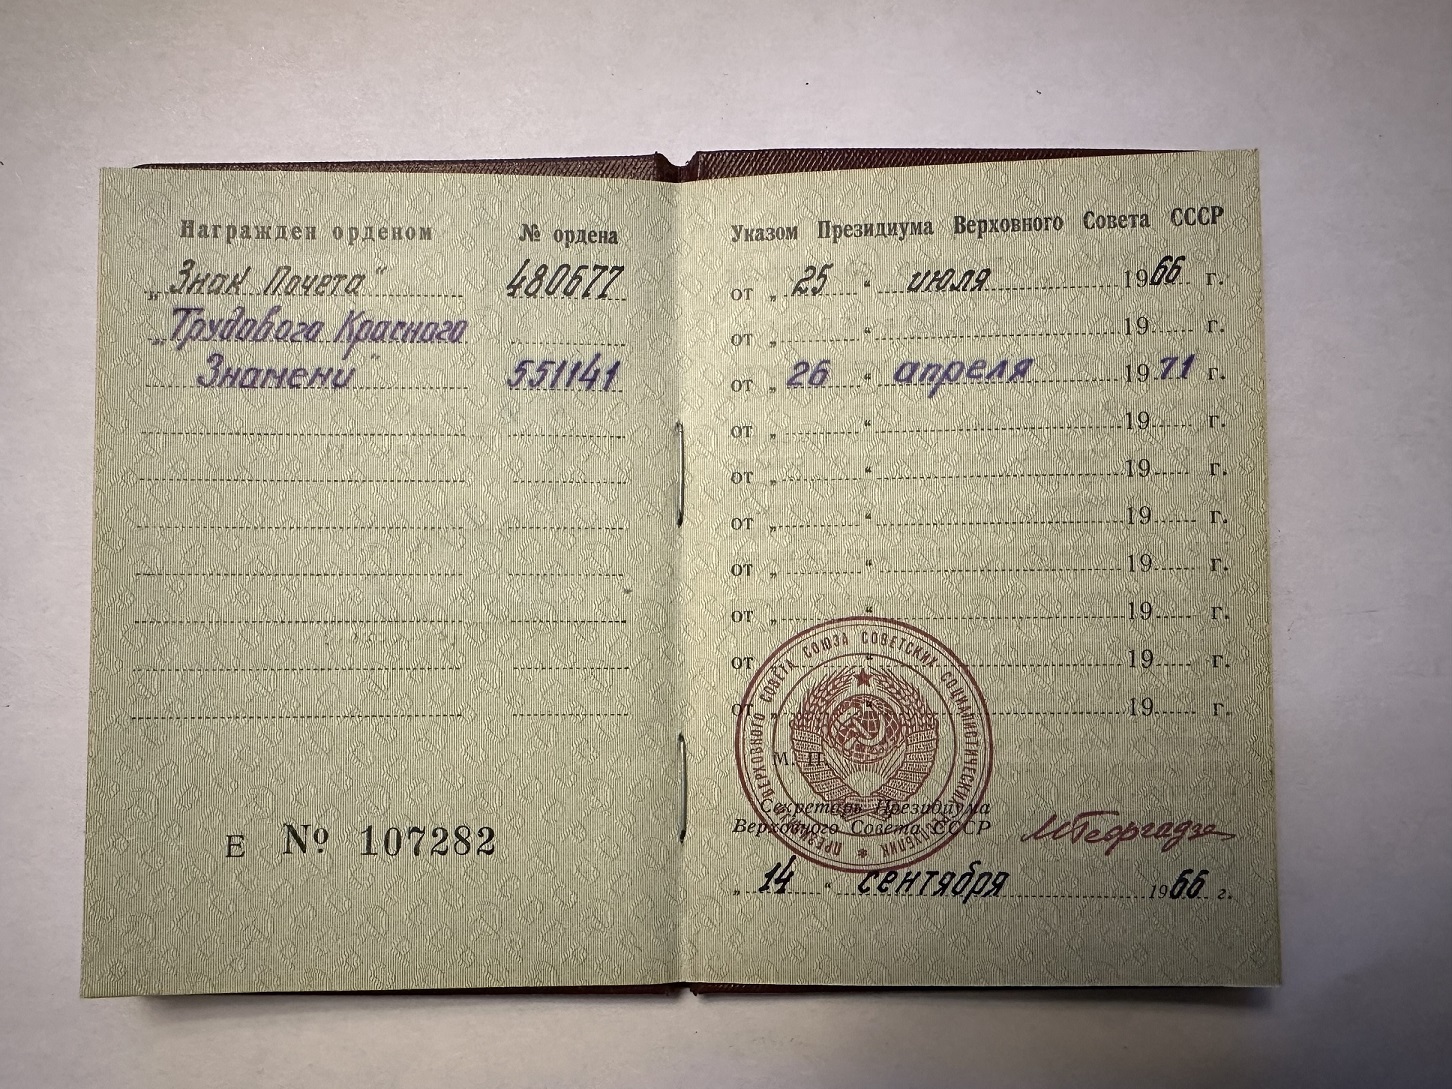 Награжден орденом № ордена
„Знак Почета“ 480677
„Трудового Красного
Знамени“ 551141
Е № 107282
Указом Президиума Верховного Совета СССР
от „ 25 “ июля 1966 г.
от „ “ 19 г.
от „ 26 “ апреля 1971 г.
от „ “ 19 г.
от „ “ 19 г.
от „ “ 19 г.
от „ “ 19 г.
от „ “ 19 г.
от „ “ 19 г.
от „ “ 19 г.
ПРЕЗИДИУМ ВЕРХОВНОГО СОВЕТА СОЮЗА СОВЕТСКИХ СОЦИАЛИСТИЧЕСКИХ РЕСПУБЛИК
М. П.
Секретарь Президиума
Верховного Совета СССР МГеоргадзе
„ 14 “ сентября 1966 г.